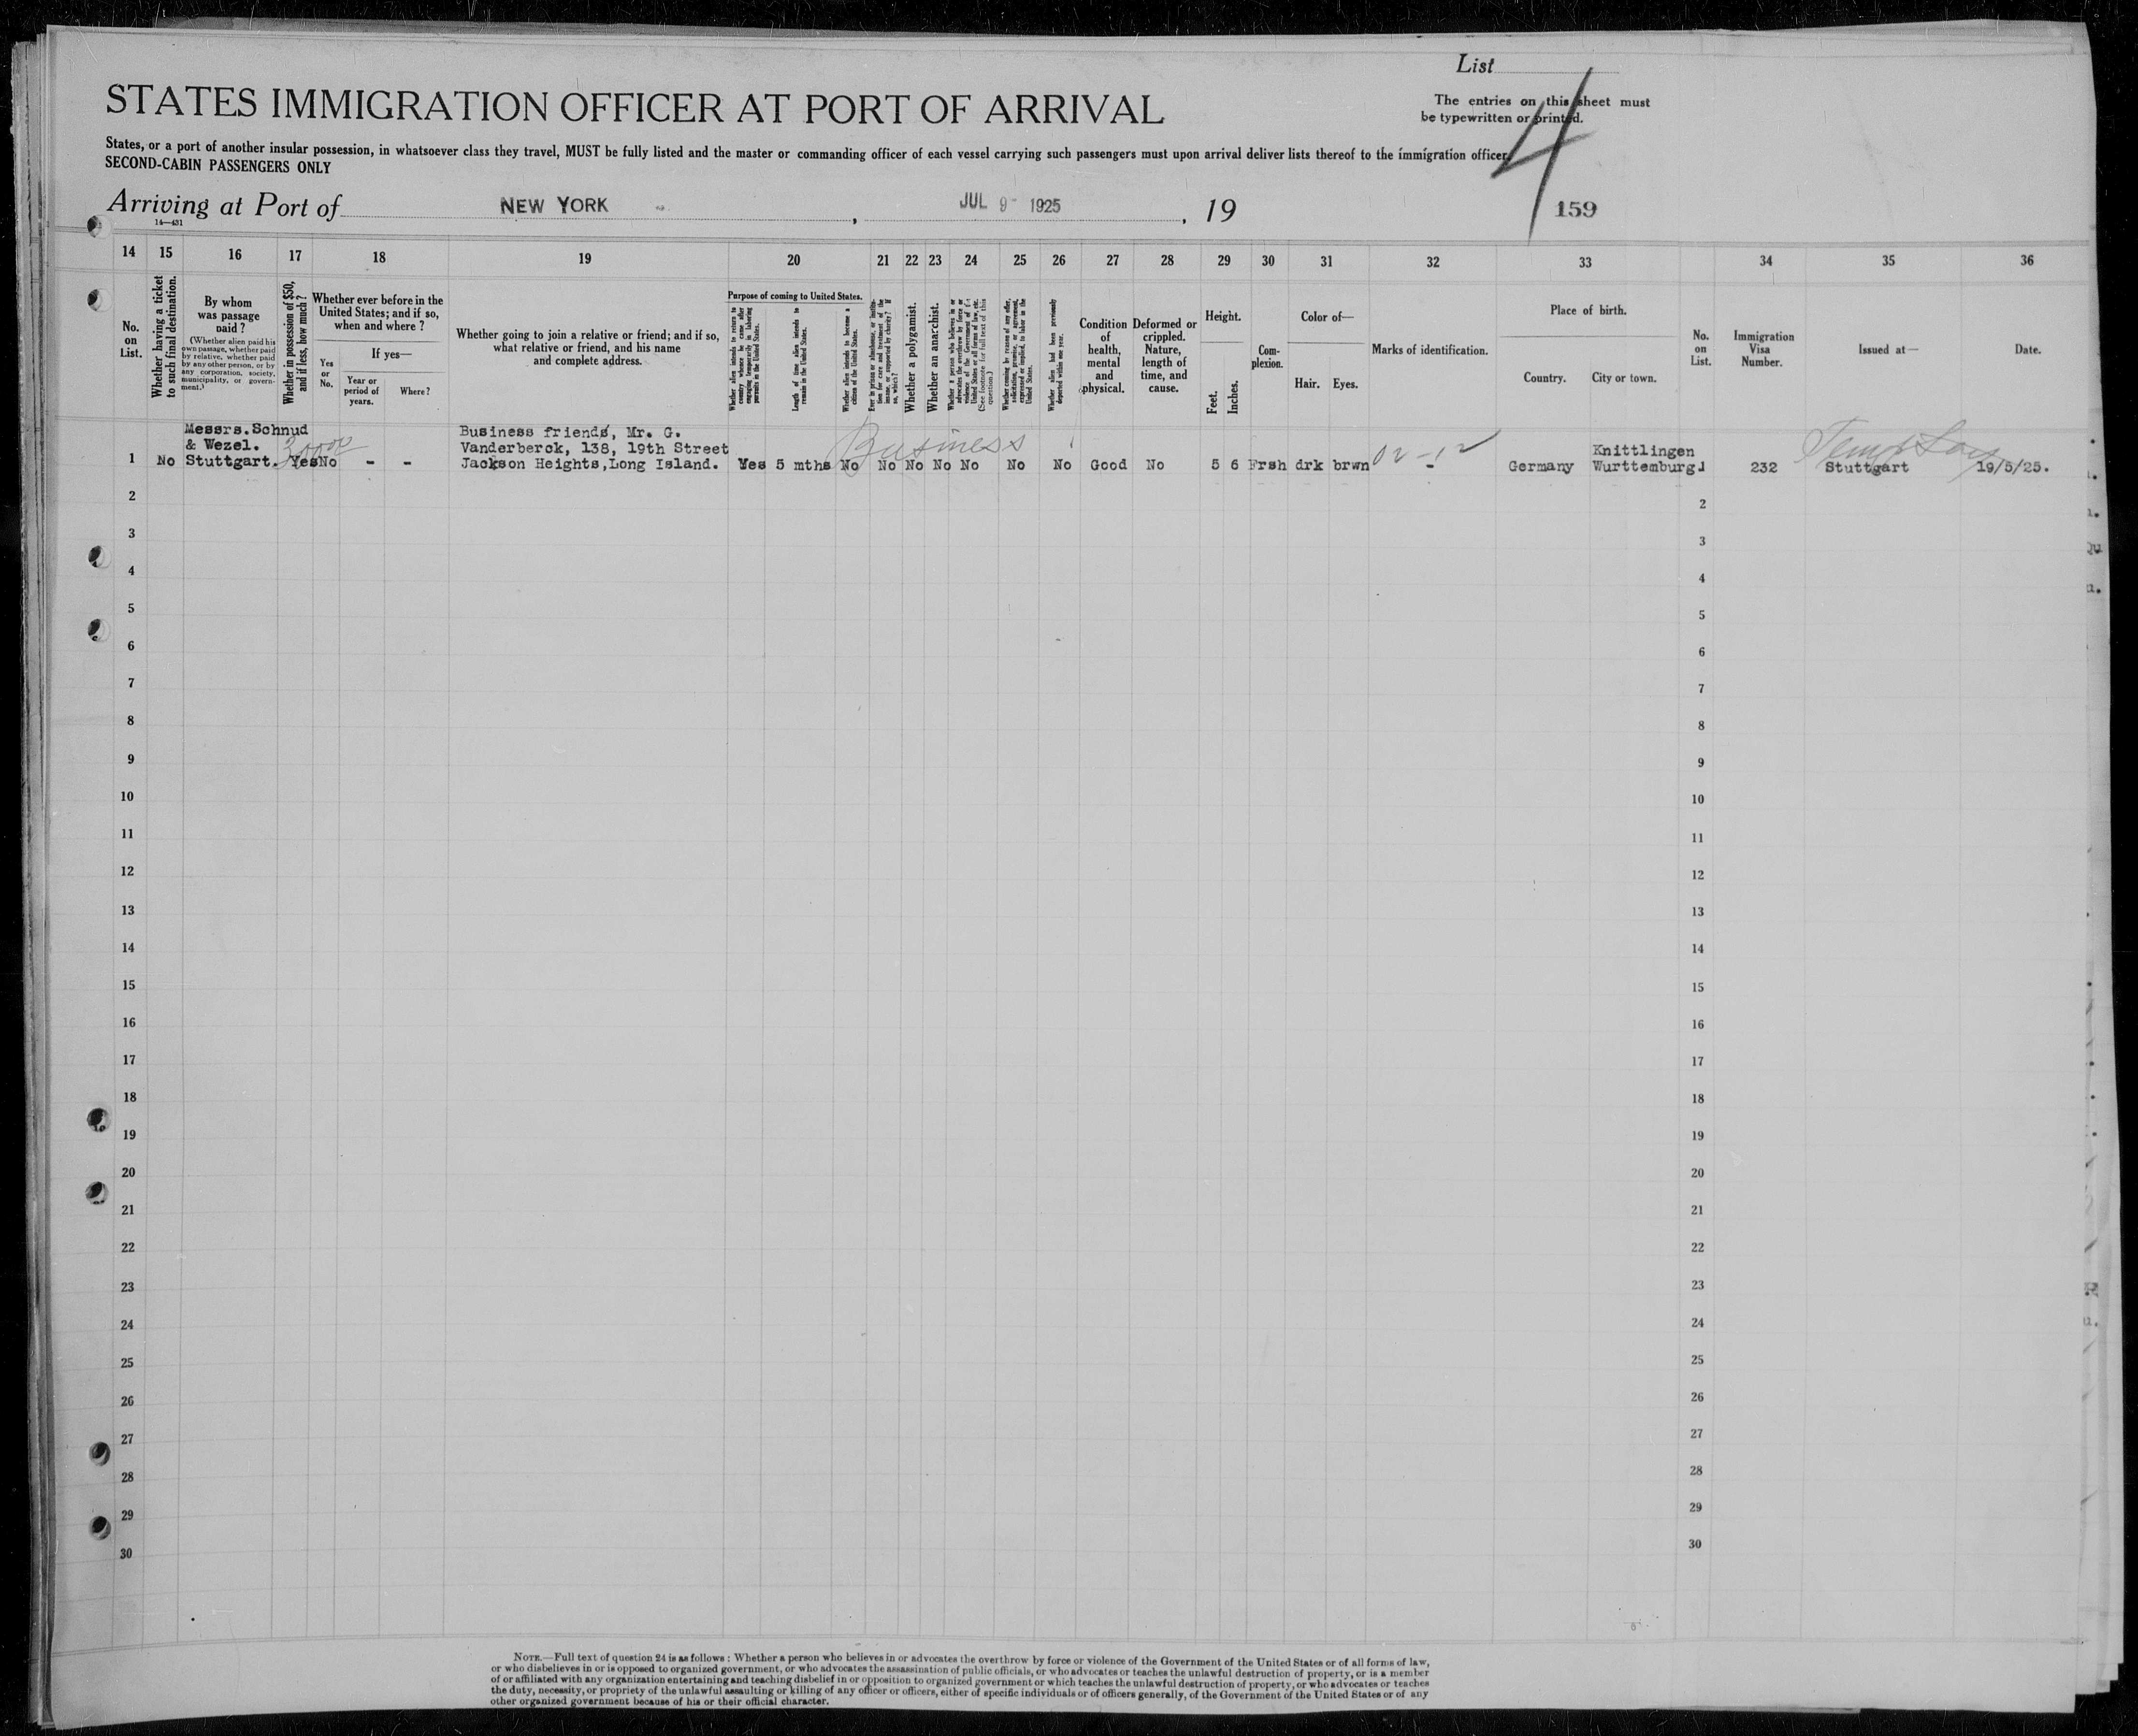 List
4
The entries on this sheet must
be typewritten or printed.
STATES IMMIGRATION OFFICER AT PORT OF ARRIVAL
States, or a port of another insular possession, in whatsoever class they travel, MUST be fully listed and the master or commanding officer of each vessel carrying such passengers must upon arrival deliver lists thereof to the immigration officer
SECOND-CABIN PASSENGERS ONLY
Arriving at Port of NEW YORK, JUL 9- 1925, 19
159
14—431
14 15 16 17 18 19 20 21 22 23 24 25 26 27 28 29 30 31 32 33 34 35 36
No. on List.
Whether having a ticket to such final destination.
By whom was passage paid?
(Whether alien paid his own passage, whether paid by relative, whether paid by any other person, or by any corporation, society, municipality, or government.)
Whether in possession of $50, and if less, how much?
Whether ever before in the United States; and if so, when and where?
Yes or No.
If yes—
Year or period of years.
Where?
Whether going to join a relative or friend; and if so, what relative or friend, and his name and complete address.
Purpose of coming to United States.
Whether alien intends to return to country whence he came after engaging temporarily in laboring pursuits in the United States.
Length of time alien intends to remain in the United States.
Whether alien intends to become a citizen of the United States.
Ever in prison or almshouse, or institution for care and treatment of the insane, or supported by charity? If so, which?
Whether a polygamist.
Whether an anarchist.
Whether a person who believes in or advocates the overthrow by force or violence of the Government of the United States or all forms of law, etc. (See footnote for full text of this question.)
Whether coming by reason of any offer, solicitation, promise, or agreement, expressed or implied, to labor in the United States.
Whether alien had been previously deported within one year.
Condition of health, mental and physical.
Deformed or crippled. Nature, length of time, and cause.
Height.
Feet.
Inches.
Complexion.
Color of—
Hair. Eyes.
Marks of identification.
Place of birth.
Country. City or town.
No. on List.
Immigration Visa Number.
Issued at—
Date.
Messrs. Schnud
& Wezel.
Business friends, Mr. G.
Vanderberck, 138, 19th Street
Business
02-12
Knittlingen
1 No Stuttgart. Yes No - - Jackson Heights, Long Island. Yes 5 mths No No No No No No No Good No 5 6 Frsh drk brwn - Germany Wurttemburg 1 232 Stuttgart 19/5/25.
2 2
3 3
4 4
5 5
6 6
7 7
8 8
9 9
10 10
11 11
12 12
13 13
14 14
15 15
16 16
17 17
18 18
19 19
20 20
21 21
22 22
23 23
24 24
25 25
26 26
27 27
28 28
29 29
30 30
NOTE.—Full text of question 24 is as follows: Whether a person who believes in or advocates the overthrow by force or violence of the Government of the United States or of all forms of law,
or who disbelieves in or is opposed to organized government, or who advocates the assassination of public officials, or who advocates or teaches the unlawful destruction of property, or is a member
of or affiliated with any organization entertaining and teaching disbelief in or opposition to organized government or which teaches the unlawful destruction of property, or who advocates or teaches
the duty, necessity, or propriety of the unlawful assaulting or killing of any officer or officers, either of specific individuals or of officers generally, of the Government of the United States or of any
other organized government because of his or their official character.